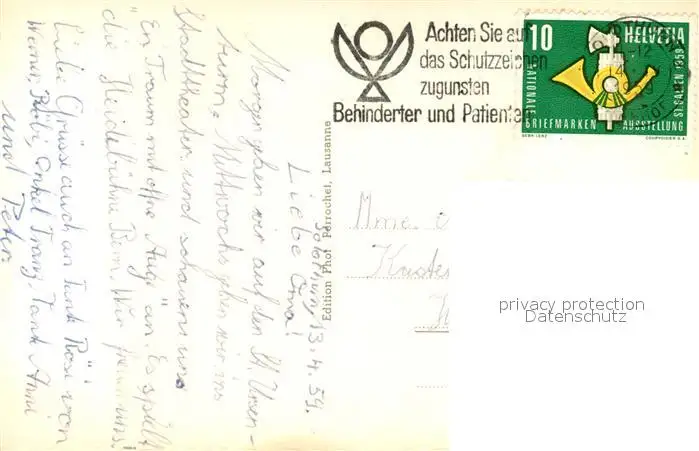 Achten Sie auf
das Schutzzeichen
zugunsten
Behinderter und Patienten
10 HELVETIA
NATIONALE
BRIEFMARKEN AUSSTELLUNG
ST. GALLEN 1959
COURVOISIER S.A.
Edition Phot Perrochet, Lausanne
Solothurn, 13.4.59.
Liebe Oma!
Morgen gehen wir auf den St. Ursen-
turm. Mittwochs gehen wir ins
Stadttheater und schauens uns
"En Traum mit offne Auge" än. Es spielt
die Heidebühne Bern. Wir freuen uns.
Liebe Grüsse auch an Tante Rösi von
Werner, Rübi, Onkel Franz, Tante Anni
und Peter.
Mme.
privacy protection
Datenschutz